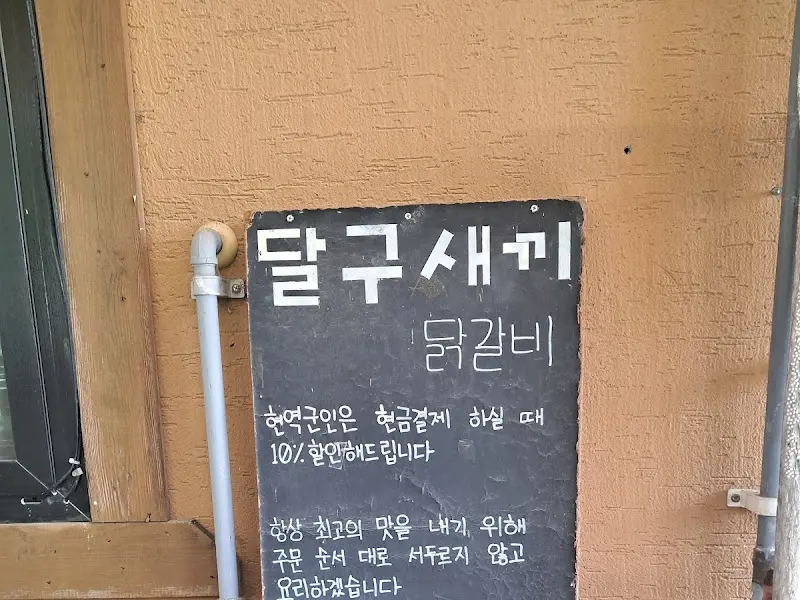 달구새끼
닭갈비
현역군인은 현금결제 하실 때
10% 할인해드립니다
항상 최고의 맛을 내기 위해
주문 순서 대로 서두르지 않고
요리하겠습니다